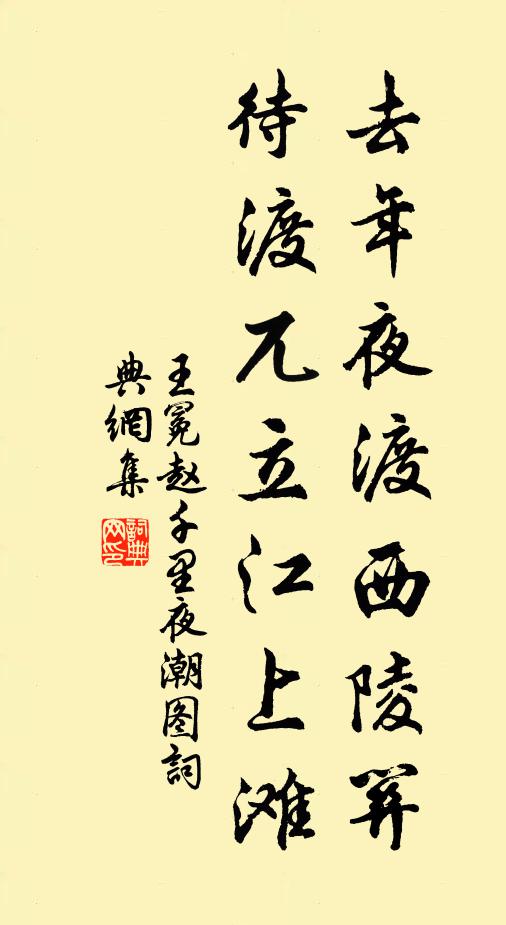 去年夜渡西陵关
待渡兀立江上滩
王冕赵千里夜潮图詞
典網集
詞典
网印